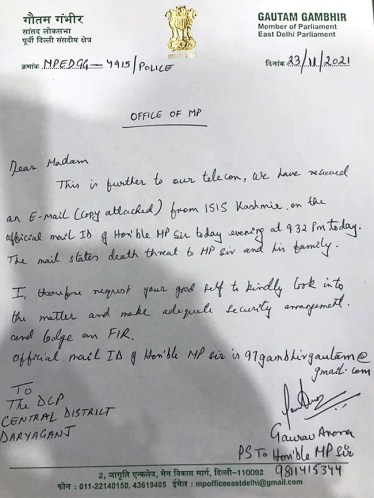 गौतम गंभीर
सांसद लोकसभा
पूर्वी दिल्ली संसदीय क्षेत्र
GAUTAM GAMBHIR
Member of Parliament
East Delhi Parliament
क्रमांक MPEDGG-4915/POLICE
दिनांक 23/11/2021
OFFICE OF MP
Dear Madam
This is further to our telecon, we have received
an E-Mail (copy attached) from ISIS Kashmir on the
official mail ID of Hon'ble MP Sir today evening at 9.32 Pm today.
The mail states death threat to MP Sir and his family.
I, therefore request your good self to kindly look into
the matter and make adequate security arrangement.
and lodge an FIR.
official mail ID of Hon'ble MP sir is 97gambhirgautam@
gmail.com
To
The DCP
CENTRAL DISTRICT
DARYAGANJ
Gaurav Arora
PS To Hon'ble MP Sir
9811415344
2, जागृति एन्क्लेव, मेन विकास मार्ग, दिल्ली-110092
फोन : 011-22140150, 43619405 ईमेल : mpofficeeastdelhi@gmail.com